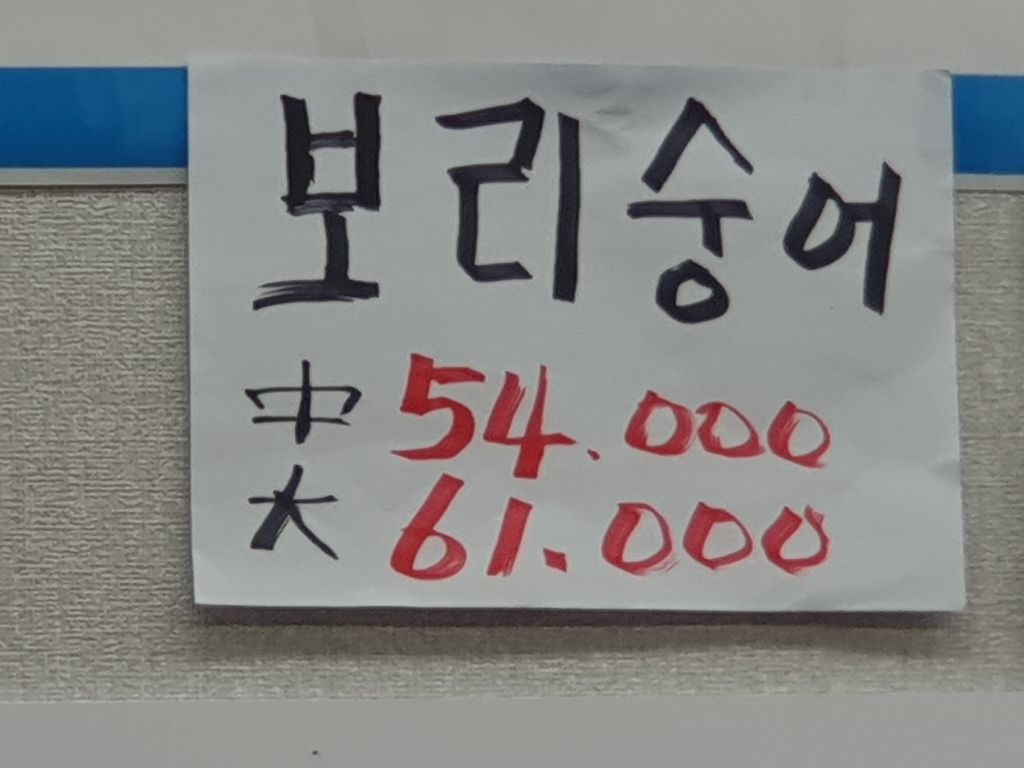 보리숭어
中 54.000
大 61.000